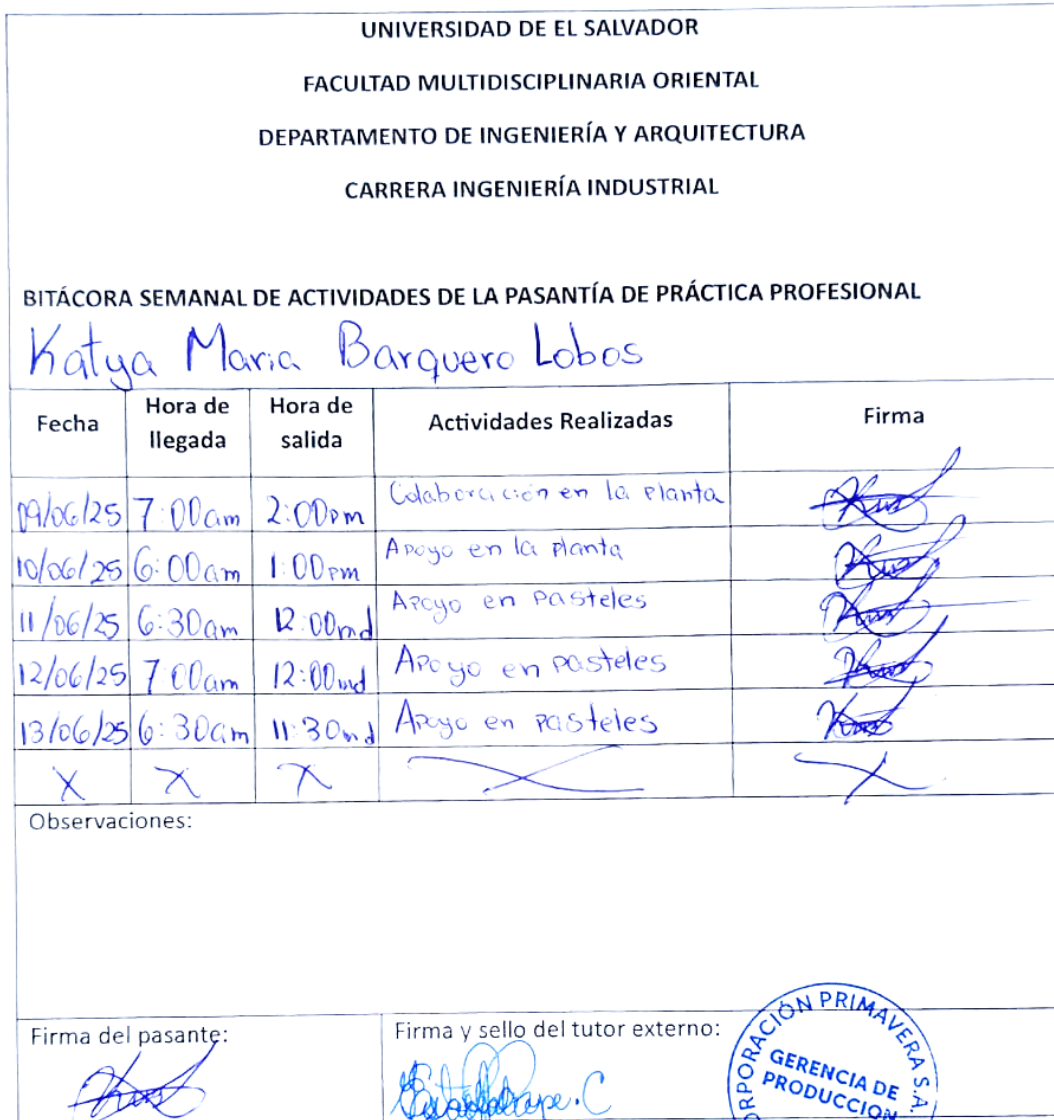 UNIVERSIDAD DE EL SALVADOR
FACULTAD MULTIDISCIPLINARIA ORIENTAL
DEPARTAMENTO DE INGENIERÍA Y ARQUITECTURA
CARRERA INGENIERÍA INDUSTRIAL
BITÁCORA SEMANAL DE ACTIVIDADES DE LA PASANTÍA DE PRÁCTICA PROFESIONAL
Katya Maria Barquero Lobos
Fecha Hora de llegada Hora de salida Actividades Realizadas Firma
09/06/25 7:00am 2:00pm Colaboración en la planta
10/06/25 6:00am 1:00pm Apoyo en la planta
11/06/25 6:30am 12:00md Apoyo en pasteles
12/06/25 7:00am 12:00md Apoyo en pasteles
13/06/25 6:30am 11:30md Apoyo en pasteles
X X X X X
Observaciones:
Firma del pasante: Firma y sello del tutor externo:
CORPORACIÓN PRIMAVERA S.A.
GERENCIA DE
PRODUCCION